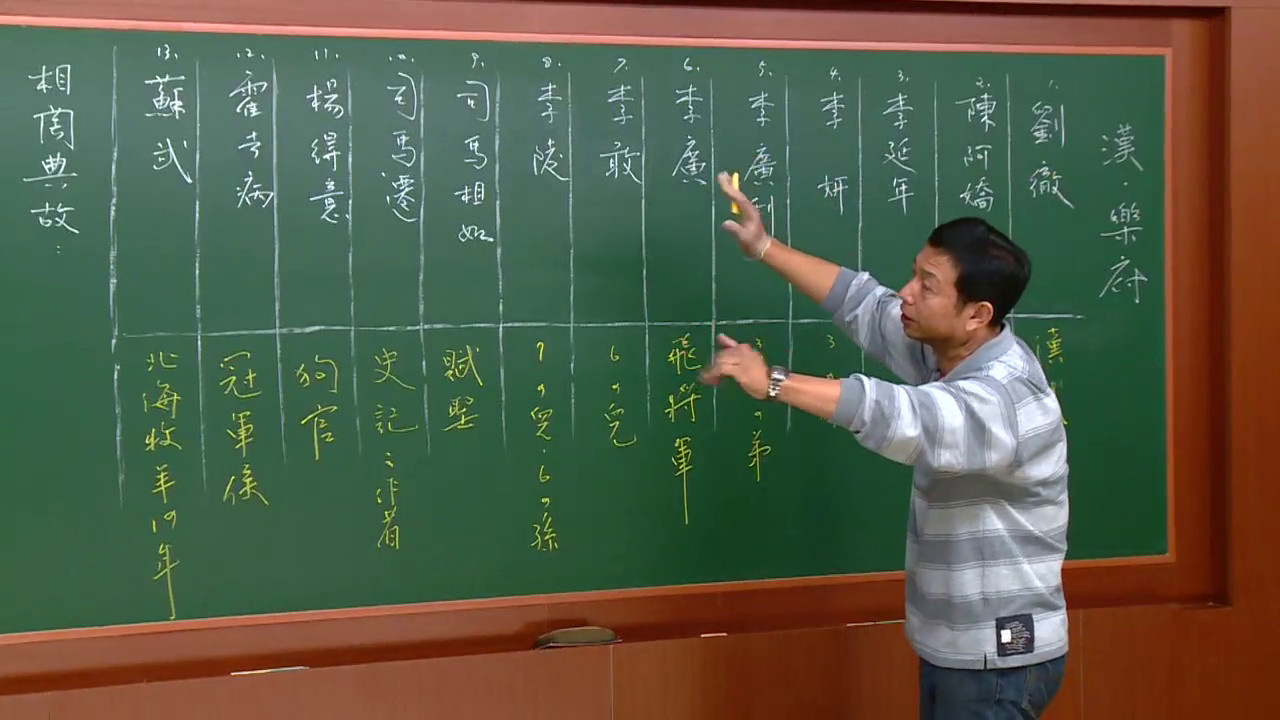 漢.樂府
1.
劉徹
漢
2.
陳阿嬌
3.
李延年
4.
李妍
3
5.
李廣利
3
の弟
6.
李廣
飛將軍
7.
李敢
6の兒
8.
李陵
7の兒.6の孫
9.
司馬相如
賦聖
10.
司馬遷
史記之作者
11.
楊得意
狗官
12.
霍去病
冠軍侯
13.
蘇武
北海牧羊19年
相關典故: